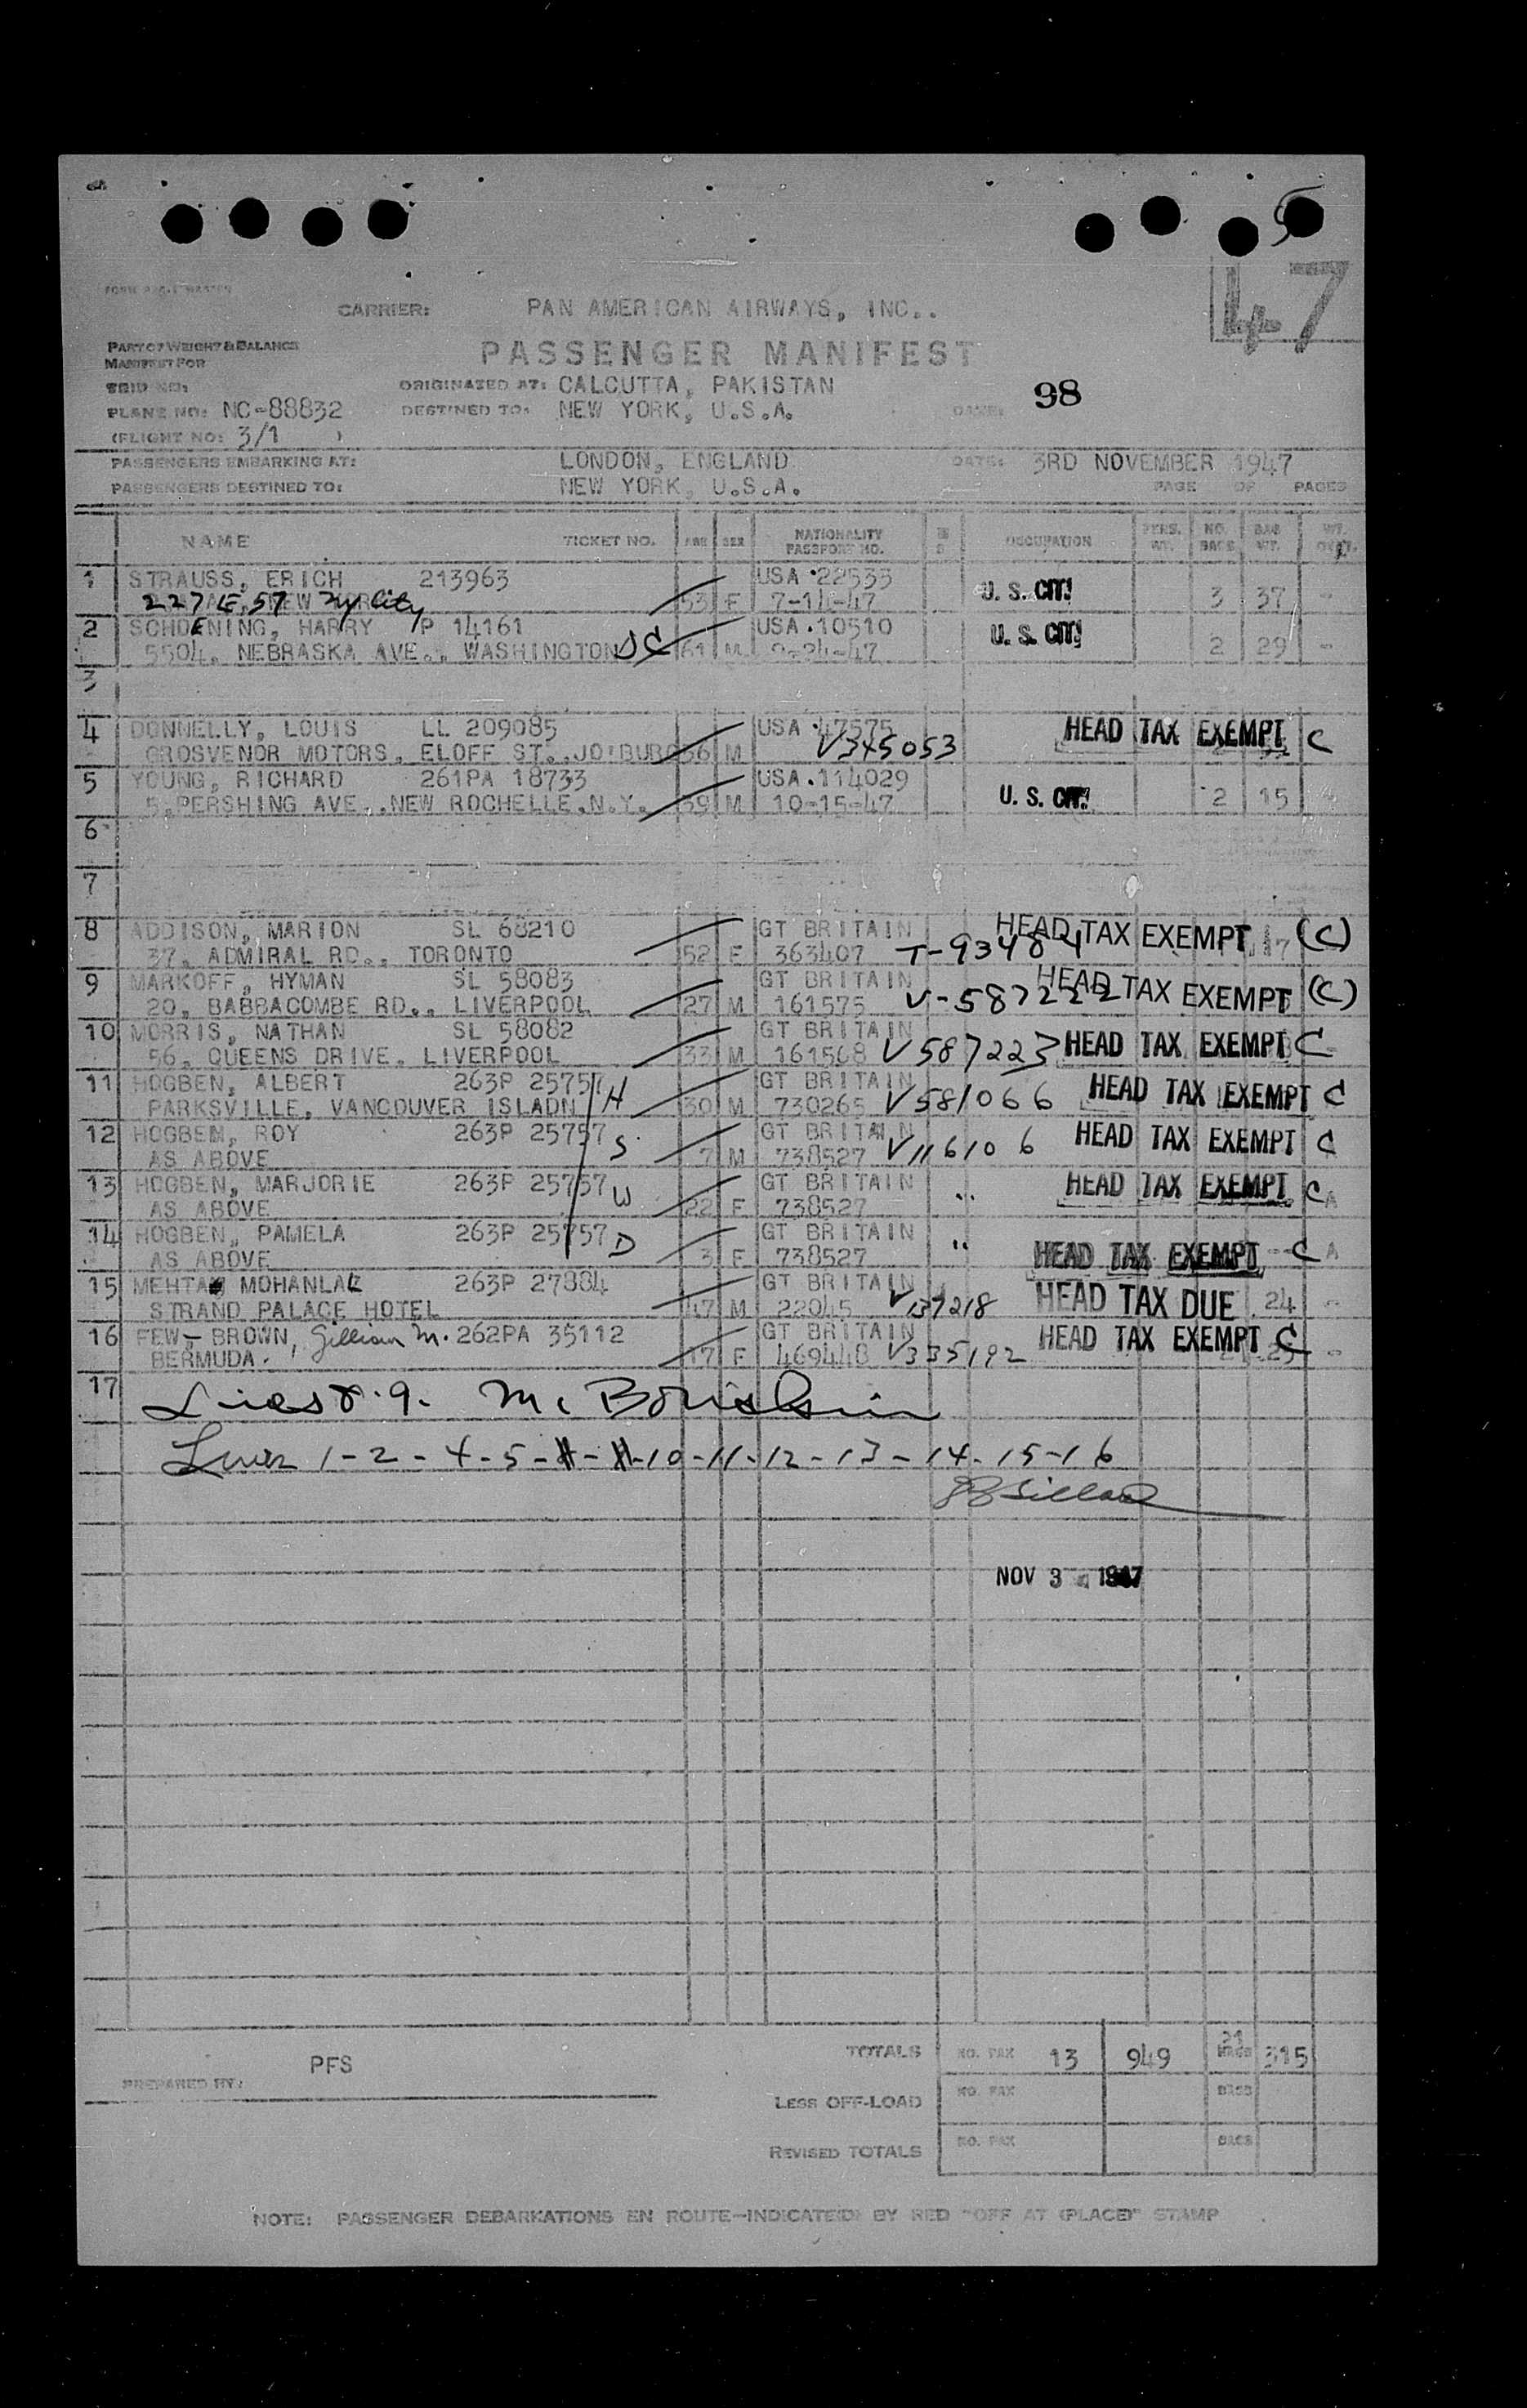 47
CARRIER: PAN AMERICAN AIRWAYS, INC..
PART OF WEIGHT & BALANCE
MANIFEST FOR
PASSENGER MANIFEST
ORIGINATED AT: CALCUTTA, PAKISTAN
98
PLANE NO: NC-88832 DESTINED TO: NEW YORK, U.S.A.
(FLIGHT NO: 3/1 )
PASSENGERS EMBARKING AT: LONDON, ENGLAND DATE: 3RD NOVEMBER 1947
PASSENGERS DESTINED TO: NEW YORK, U.S.A. PAGE OF PAGES
NAME TICKET NO. AGE SEX NATIONALITY PASSPORT NO. OCCUPATION PERS. WT. NO. BAGS BAG WT.
1 STRAUSS, ERICH 213963 USA 22533 U. S. CIT.
227 E. 57 NY City 53 F 7-14-47 3 37 -
2 SCHOENING, HARRY P 14161 USA.10510 U. S. CIT.
5504, NEBRASKA AVE., WASHINGTON DC 61 M 9-24-47 2 29 -
3
4 DONNELLY, LOUIS LL 209085 USA 47575 HEAD TAX EXEMPT C
GROSVENOR MOTORS, ELOFF ST., JO'BURG 36 M V345053
5 YOUNG, RICHARD 261PA 18733 USA.114029
5.PERSHING AVE.,NEW ROCHELLE.N.Y. 39 M 10-15-47 U. S. CIT. 2 15 -
6
7
8 ADDISON, MARION SL 68210 GT BRITAIN HEAD TAX EXEMPT (C)
37, ADMIRAL RD., TORONTO 52 F 363407 T-93484
9 MARKOFF, HYMAN SL 58083 GT BRITAIN HEAD TAX EXEMPT (C)
20, BABBACOMBE RD., LIVERPOOL 27 M 161575 V-587222
10 MORRIS, NATHAN SL 58082 GT BRITAIN
56, QUEENS DRIVE, LIVERPOOL 33 M 161568 V587223 HEAD TAX EXEMPT C
11 HOGBEN, ALBERT 263P 25757 H GT BRITAIN
PARKSVILLE, VANCOUVER ISLADN 30 M 730265 V581066 HEAD TAX EXEMPT C
12 HOGBEN, ROY 263P 25757 S GT BRITAIN
AS ABOVE 7 M 738527 V116106 HEAD TAX EXEMPT C
13 HOGBEN, MARJORIE 263P 25757 W GT BRITAIN HEAD TAX EXEMPT C
AS ABOVE 22 F 738527 "
14 HOGBEN, PAMELA 263P 25757 D GT BRITAIN
AS ABOVE 3 F 738527 " HEAD TAX EXEMPT C A
15 MEHTA MOHANLAL 263P 27884 GT BRITAIN
STRAND PALACE HOTEL 47 M 22045 V137218 HEAD TAX DUE 24 -
16 FEW- BROWN, Gillian M. 262PA 35112 GT BRITAIN HEAD TAX EXEMPT C
BERMUDA. 17 F 469448 V335192
17 Lines 8.9.
Lines 1-2-4-5-10-11-12-13-14-15-16
NOV 3 1947
TOTALS NO. PAX 13 949 21 BAGS 315
PFS
PREPARED BY:
LESS OFF-LOAD NO. PAX BAGS
REVISED TOTALS NO. PAX BAGS
NOTE: PASSENGER DEBARKATIONS EN ROUTE-INDICATED BY RED "OFF AT (PLACE)" STAMP